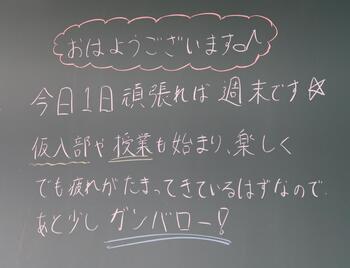 おはようございます♪
今日1日頑張れば週末です☆
仮入部や授業も始まり、楽しく
でも疲れがたまってきているはずなので、
あと少しガンバロー!